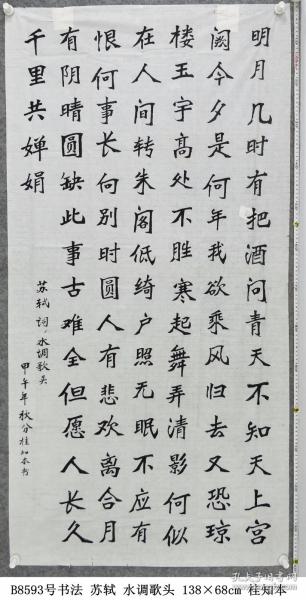 明月几时有把酒问青天不知天上宫
阙今夕是何年我欲乘风归去又恐琼
楼玉宇高处不胜寒起舞弄清影何似
在人间转朱阁低绮户照无眠不应有
恨何事长向别时圆人有悲欢离合月
有阴晴圆缺此事古难全但愿人长久
千里共婵娟
苏轼词·水调歌头
甲午年秋分桂知本书
B8593号书法 苏轼 水调歌头 138×68cm 桂知本